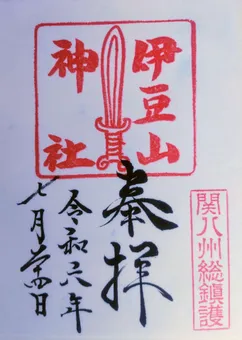 伊豆山
神社
関八州総鎮護
奉拝
令和六年
七月 日